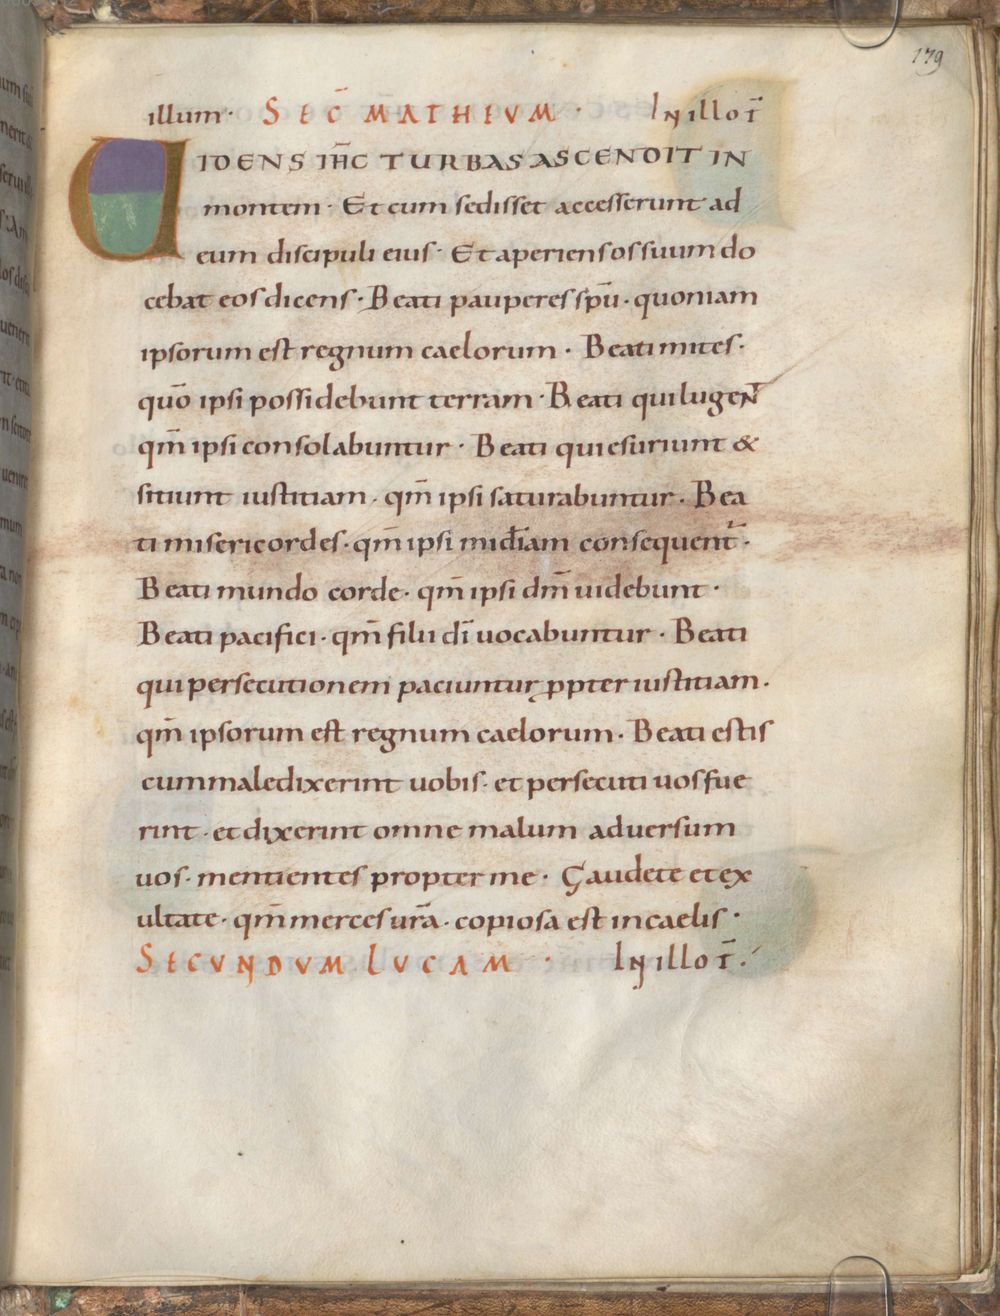 179
illum· SEC̄ MATHEUM · IN illo t̄
UIDENS IH̄C TURBAS ASCENDIT IN
montem· Et cum sedisset accesserunt ad
eum discipuli eius· Et aperiens os suum do
cebat eos dicens· Beati pauperes sp̄u· quoniam
ipsorum est regnum caelorum· Beati mites·
quō ipsi possidebunt terram· Beati qui lugeN̄T
qm̄ ipsi consolabuntur· Beati qui esuriunt &
sitiunt iustitiam· qm̄ ipsi saturabuntur· Bea
ti misericordes· qm̄ ipsi mid̄iam consequent̄·
Beati mundo corde· qm̄ ipsi dm̄ uidebunt·
Beati pacifici· qm̄ filii dī uocabuntur· Beati
qui persecutionem paciuntur ꝓpter iustitiam·
qm̄ ipsorum est regnum caelorum· Beati estis
cum maledixerint uobis· et persecuti uos fue
rint· et dixerint omne malum aduersum
uos· mentientes propter me· Gaudete et ex
ultate· qm̄ merces ur̄a· copiosa est in caelis·
SECUNDUM LUCAM · IN illo t̄·